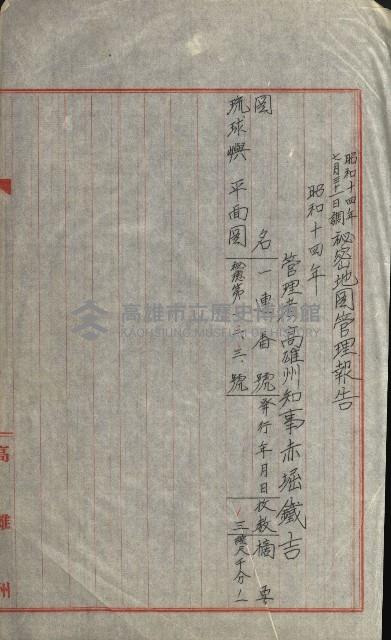 昭和十四年
七月三十一日調
秘密地図管理報告
昭和十四年
管理者高雄州知事赤堀鐵吉
図名 一連番號 發行年月日 枚数 摘要
琉球嶼平面図 秘第三三號 一 三千分ノ一
高雄州
高雄市立歷史博物館
KAOHSIUNG MUSEUM OF HISTORY